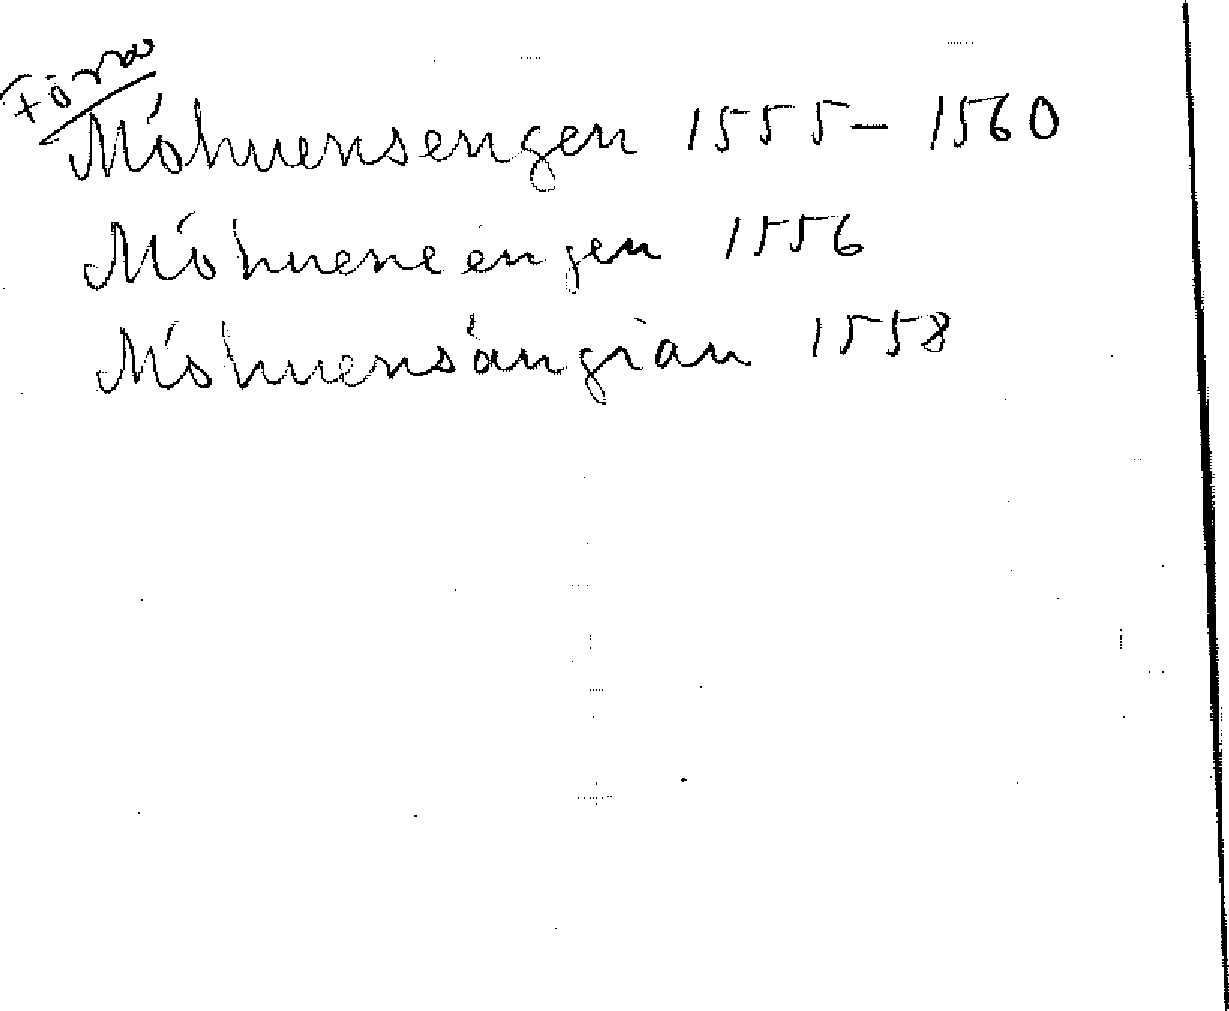 Föra
Möhuensengen 1555 – 1560
Möhueneengen 1556
Möhuensängian 1558